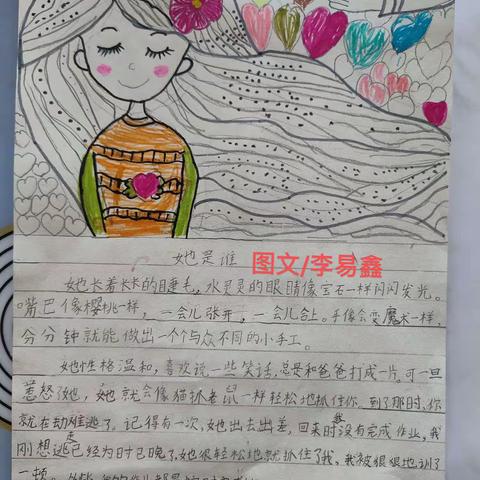 她是谁
图文/李易鑫
她长着长长的睫毛，水灵灵的眼睛像宝石一样闪闪发光。
嘴巴像樱桃一样，一会儿张开，一会儿合上。手像会变魔术一样，
分分钟就能做出一个个与众不同的小手工。
她性格温和，喜欢说一些笑话，总是和爸爸打成一片。可一旦
惹怒了她，她就会像猫抓老鼠一样轻松地抓住你，到了那时，你
就在劫难逃了。记得有一次，她出去出差，回来时我没有完成作业，我
刚想逃走已经为时已晚了，她很轻松地就抓住了我，我被狠狠地训了
一顿。